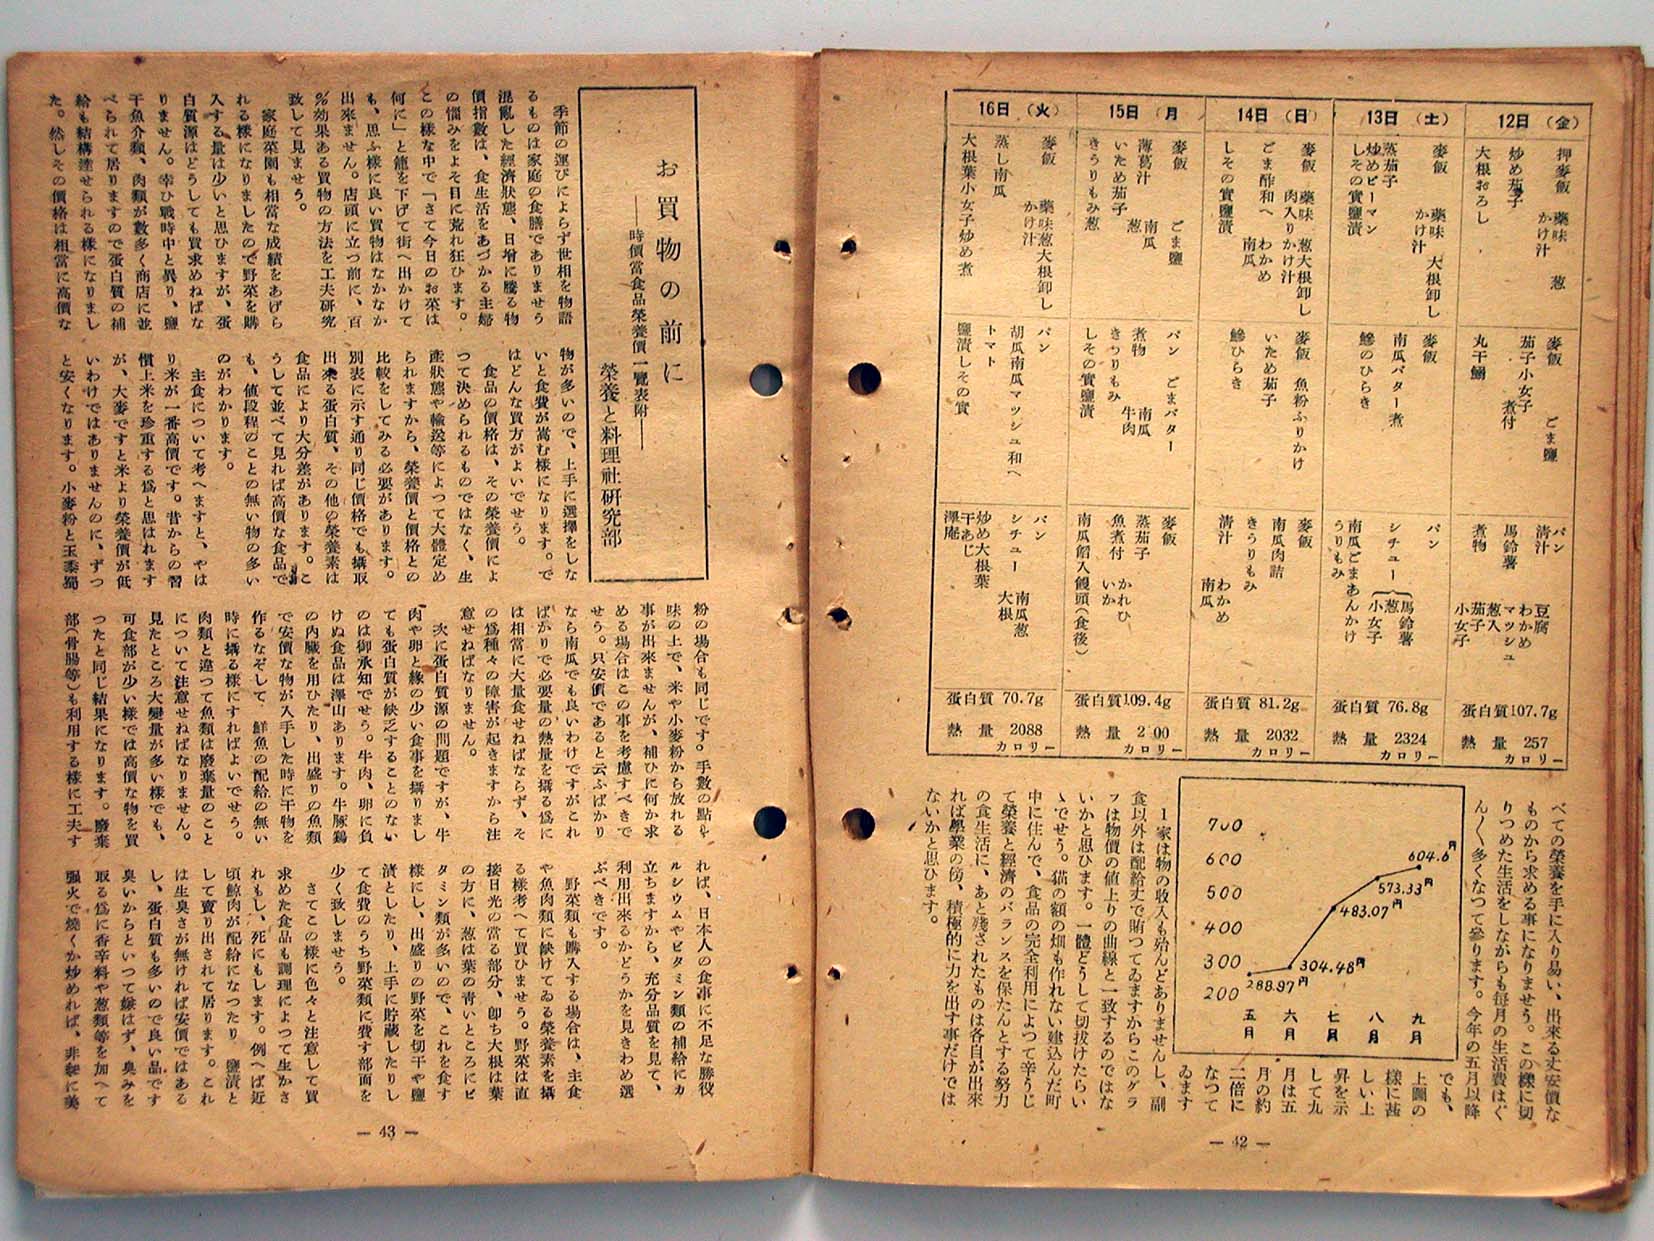 12日(金)
押麥飯 藥味 葱
かけ汁
炒め茄子
大根おろし
麥飯 ごま鹽
茄子小女子煮付
丸干鰯
パン
清汁 豆腐 わかめ
馬鈴薯マッシュ
葱入
煮物 茄子 小女子
蛋白質107.7g
熱量 257
カロリー
13日(土)
麥飯 藥味 大根卸し
かけ汁
蒸茄子
炒めピーマン
しその實鹽漬
麥飯
南瓜バター煮
鰺のひらき
パン
シチュー 馬鈴薯 葱 小女子
南瓜ごまあんかけ
うりもみ
蛋白質 76.8g
熱量 2324
カロリー
14日(日)
麥飯 藥味 葱大根卸し
肉入りかけ汁
ごま酢和へ わかめ 南瓜
しその實鹽漬
麥飯 魚粉ふりかけ
いため茄子
鰺ひらき
麥飯
南瓜肉詰
きうりもみ
清汁 わかめ 南瓜
蛋白質 81.2g
熱量 2032
カロリー
15日(月)
麥飯 ごま鹽
薄葛汁 南瓜 葱
いため茄子
きうりもみ
パン ごまバター
煮物 南瓜 牛肉
きうりもみ
しその實鹽漬
麥飯
蒸茄子
魚煮付 かれひ いか
南瓜餡入饅頭(食後)
蛋白質109.4g
熱量 2 00
カロリー
16日(火)
麥飯 藥味葱大根卸し
かけ汁
蒸し南瓜
大根葉小女子炒め煮
パン
胡瓜南瓜マッシュ和へ
トマト
鹽漬しその實
パン
シチュー 南瓜葱 大根
炒め大根葉
干あじ
澤庵
蛋白質 70.7g
熱量 2088
カロリー
べての榮養を手に入り易い、出來る丈安價な
ものから求める事になりませう。この様に切
りつめた生活をしながらも毎月の生活費はぐ
ん〳〵多くなつて參ります。今年の五月以降
でも、
上圖の
様に甚
しい上
昇を示
して九
月は五
月の約
二倍に
なつて
ゐます
700
600
500
400
300
200
288.97円
304.48円
483.07円
573.33円
604.6円
五月
六月
七月
八月
九月
1家は物の收入も殆んどありませんし、副
食以外は配給丈で賄つてゐますからこのグラ
フは物價の値上りの曲線と一致するのではな
いかと思ひます。一體どうして切抜けたらい
ゝでせう。猫の額の畑も作れない建込んだ町
中に住んで、食品の完全利用によつて辛うじ
て榮養と經濟のバランスを保たんとする努力
の食生活に、あと殘されたものは各自が出來
れば學業の傍、積極的に力を出す事だけでは
ないかと思ひます。
— 42 —
お買物の前に
——時價當食品榮養價一覽表附——
榮養と料理社研究部
季節の運びによらず世相を物語
るものは家庭の食膳でありませう
混亂した經濟狀態、日增に騰る物
價指數は、食生活をあづかる主婦
の惱みをよそ目に荒れ狂ひます。
この様な中で「さて今日のお菜は
何に」と籠を下げて街へ出かけて
も、思ふ様に良い買物はなかなか
出來ません。店頭に立つ前に、百
%効果ある買物の方法を工夫研究
致して見ませう。
家庭菜園も相當な成績をあげら
れる様になりましたので野菜を購
入する量は少いと思ひますが、蛋
白質源はどうしても買求めねばな
りません。幸ひ戰時中と異り、鹽
干魚介類、肉類が數多く商店に並
べられて居りますので蛋白質の補
給も結構達せられる様になりまし
た。然しその價格は相當に高價な
物が多いので、上手に選擇をしな
いと食費が嵩む様になります。で
はどんな買方がよいでせう。
食品の價格は、その榮養價によ
つて決められるものではなく、生
產狀態や輸送等によつて大體定め
られますから、榮養價と價格との
比較をしてみる必要があります。
別表に示す通り同じ價格でも攝取
出來る蛋白質、その他の榮養素は
食品により大分差があります。こ
うして並べて見れば高價な食品で
も、値段程のことの無い物の多い
のがわかります。
主食について考へますと、やは
り米が一番高價です。昔からの習
慣上米を珍重する爲と思はれます
が、大麥ですと米より榮養價が低
いわけではありませんのに、ずつ
と安くなります。小麥粉と玉蜀黍
粉の場合も同じです。手數の點や
味の上で、米や小麥粉から放れる
事が出來ませんが、補ひに何か求
める場合はこの事を考慮すべきで
せう。只安價であると云ふばかり
なら南瓜でも良いわけですがこれ
ばかりで必要量の熱量を攝る爲に
は相當に大量食せねばならず、そ
の爲種々の障害が起きますから注
意せねばなりません。
次に蛋白質源の問題ですが、牛
肉や卵と緣の少い食事を攝りまし
ても蛋白質が缺乏することのない
のは御承知でせう。牛肉、卵に負
けぬ食品は澤山あります。牛豚鷄
の內臟を用ひたり、出盛りの魚類
で安價な物が入手した時に干物を
作るなぞして、鮮魚の配給の無い
時に攝る様にすればよいでせう。
肉類と違つて魚類は廢棄量のこと
について注意せねばなりません。
見たところ大變量が多い様でも、
可食部が少い様では高價な物を買
つたと同じ結果になります。廢棄
部(骨腸等)も利用する様に工夫す
れば、日本人の食事に不足な勝役
ルシウムやビタミン類の補給にカ
立ちますから、充分品質を見て、
利用出來るかどうかを見きわめ選
ぶべきです。
野菜類も購入する場合は、主食
や魚肉類に缺けてゐる榮養素を攝
る様考へて買ひませう。野菜は直
接日光の當る部分、卽ち大根は葉
の方に、葱は葉の靑いところにビ
タミン類が多いので、これを食す
様にし、出盛りの野菜を切干や鹽
漬としたり、上手に貯藏したりし
て食費のうち野菜類に費す部面を
少く致しませう。
さてこの様に色々と注意して買
求めた食品も調理によつて生かさ
れもし、死にもします。例へば近
頃鯨肉が配給になつたり 鹽漬と
して賣り出されて居ります。これ
は生臭さが無ければ安價ではある
し、蛋白質も多いので良い品です
臭いからといつて嫌はず、臭みを
取る爲に香辛料や葱類等を加へて
强火で燒くか炒めれば、非常に美
— 43 —